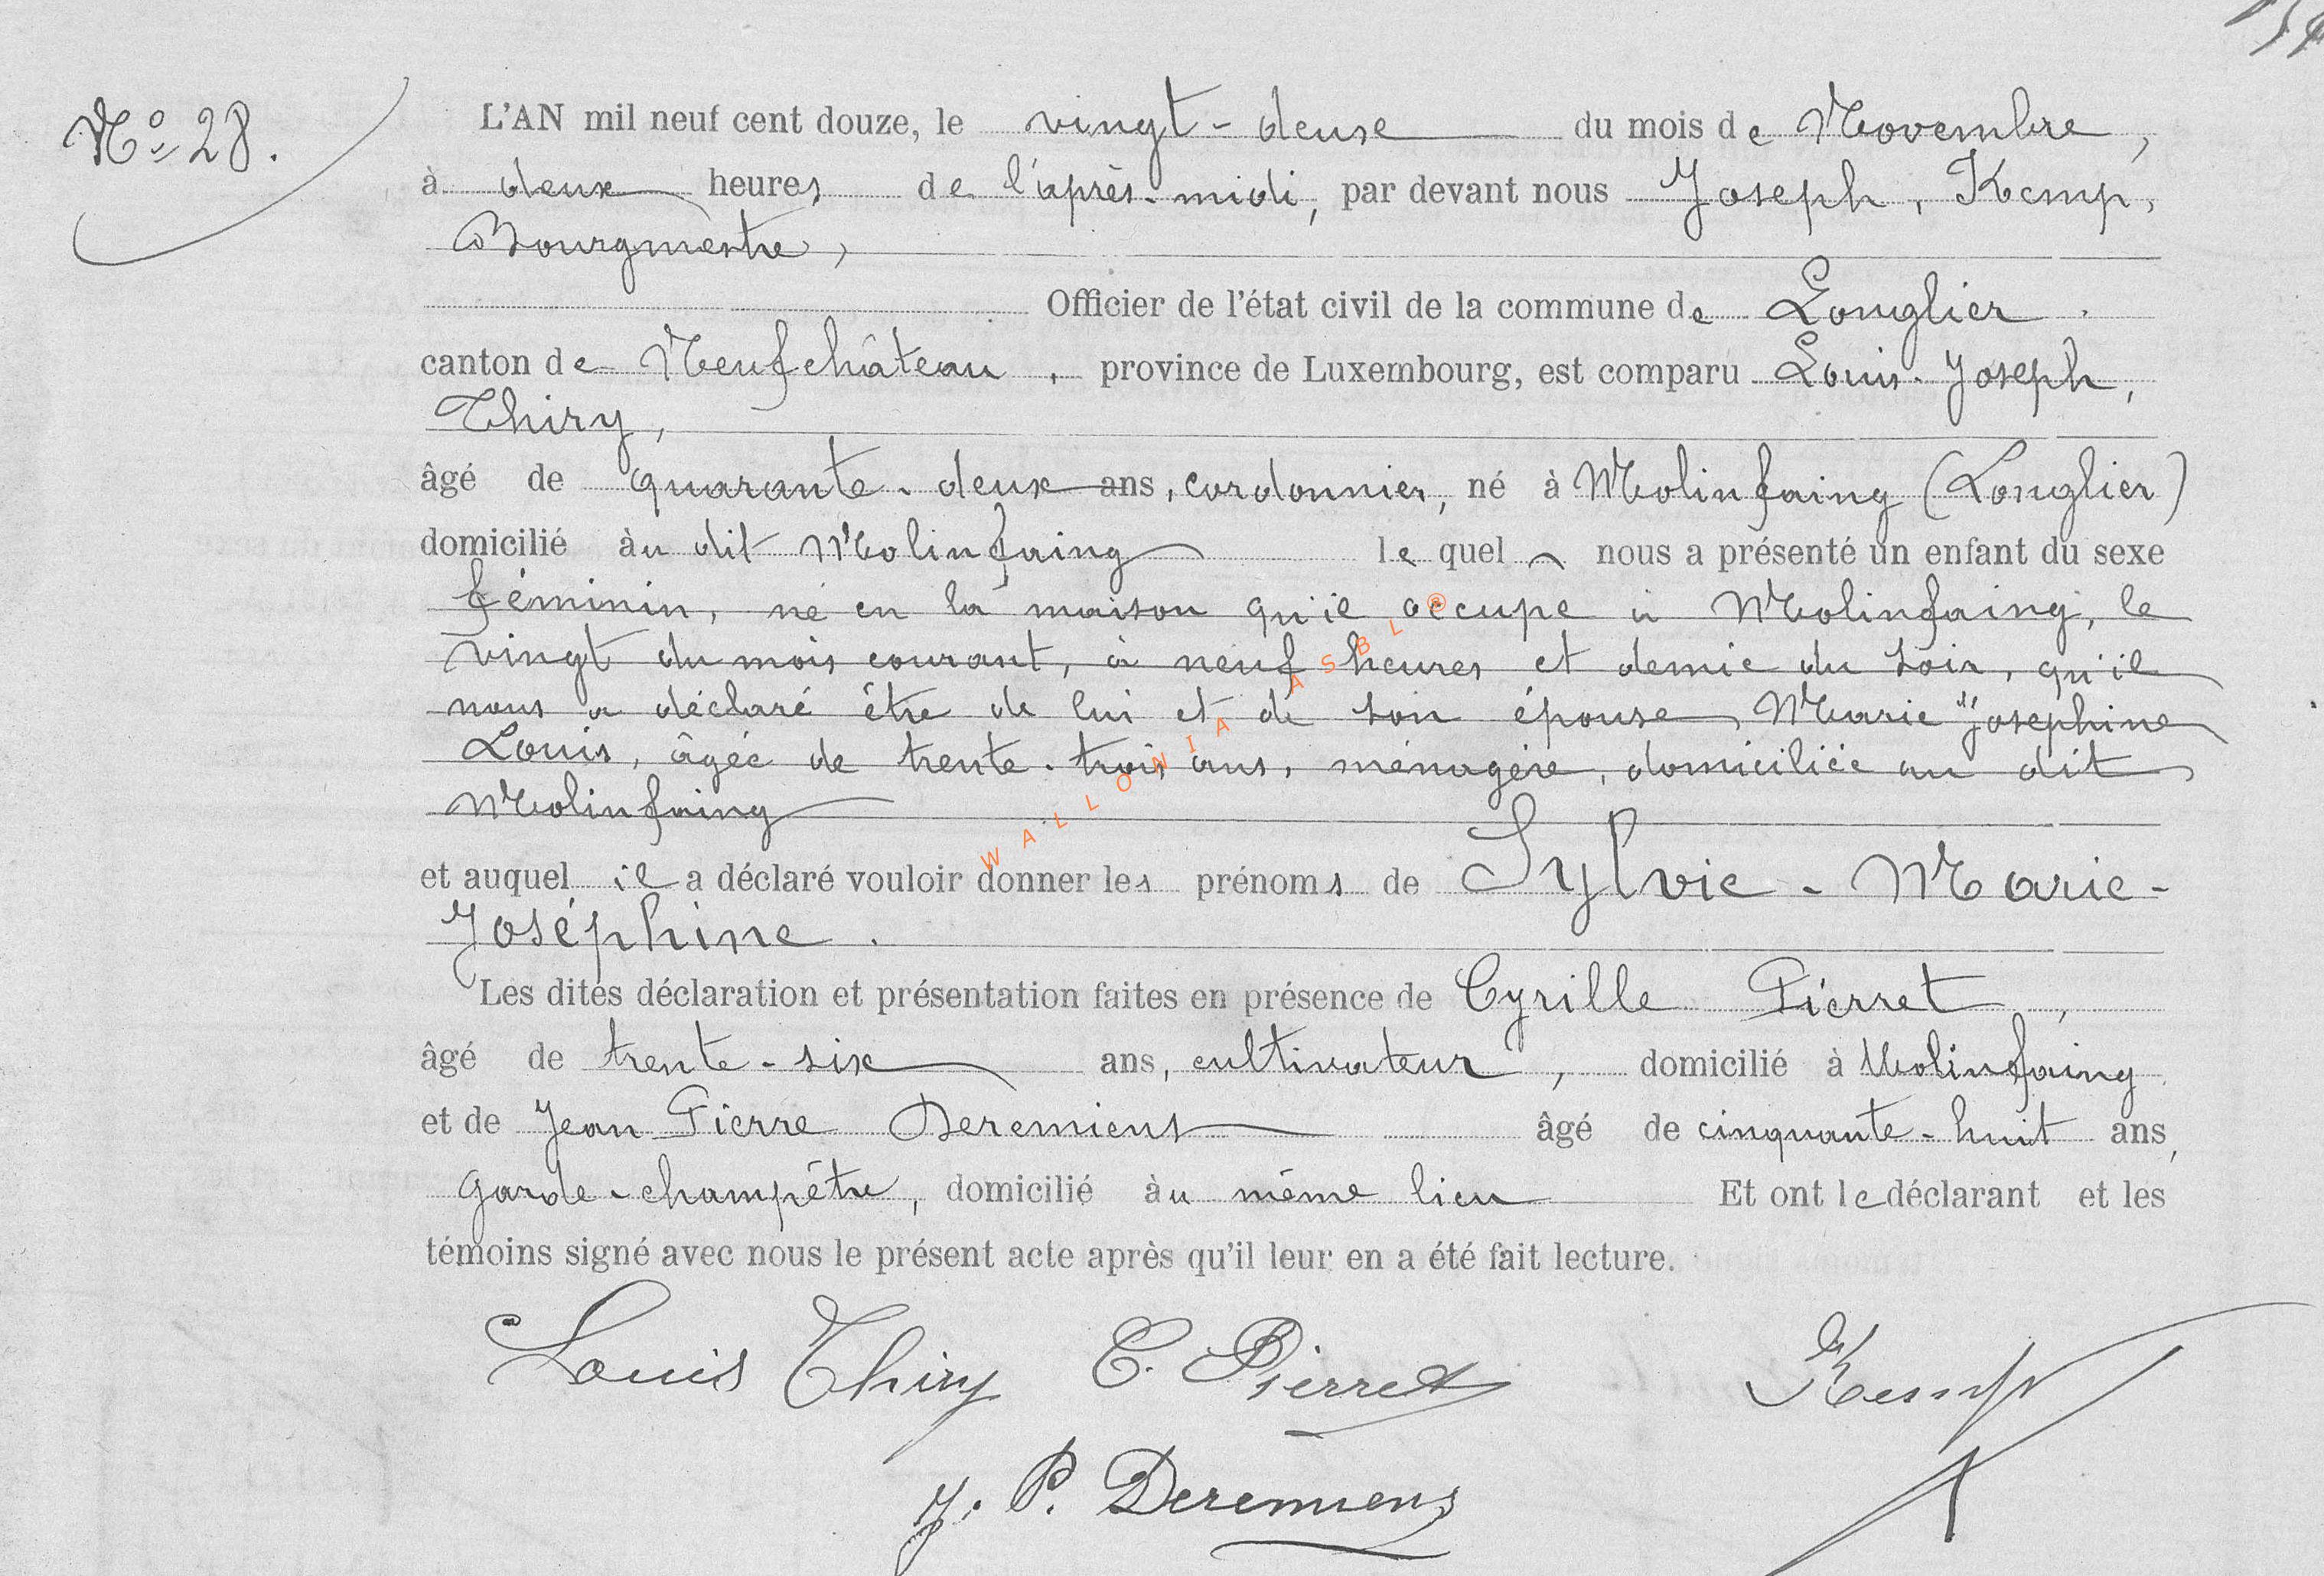 Nº 28.
L'AN mil neuf cent douze, le vingt-deux du mois de Novembre,
à deux heures de l'après-midi, par devant nous Joseph, Kemp,
Bourgmestre,
Officier de l'état civil de la commune de Longlier.
canton de Neufchâteau, province de Luxembourg, est comparu Louis-Joseph,
Thiry,
âgé de quarante-deux ans, cordonnier, né à Molinfaing (Longlier)
domicilié au dit Molinfaing le quel nous a présenté un enfant du sexe
féminin, né en la maison qu'il occupe à Molinfaing, le
vingt du mois courant, à neuf heures et demie du soir, qu'il
nous a déclaré être de lui et de son épouse, Marie Josephine
Louis, âgée de trente-trois ans, ménagère, domiciliée au dit
Molinfaing
et auquel il a déclaré vouloir donner les prénoms de Sylvie-Marie-
Joséphine.
Les dites déclaration et présentation faites en présence de Cyrille Pierret,
âgé de trente-six ans, cultivateur, domicilié à Molinfaing
et de Jean Pierre Deremiens âgé de cinquante-huit ans,
garde-champêtre, domicilié au même lieu Et ont le déclarant et les
témoins signé avec nous le présent acte après qu'il leur en a été fait lecture.
Louis Thiry C. Pierret Kemp
J. P. Deremiens
WALLONIA ASBL ®